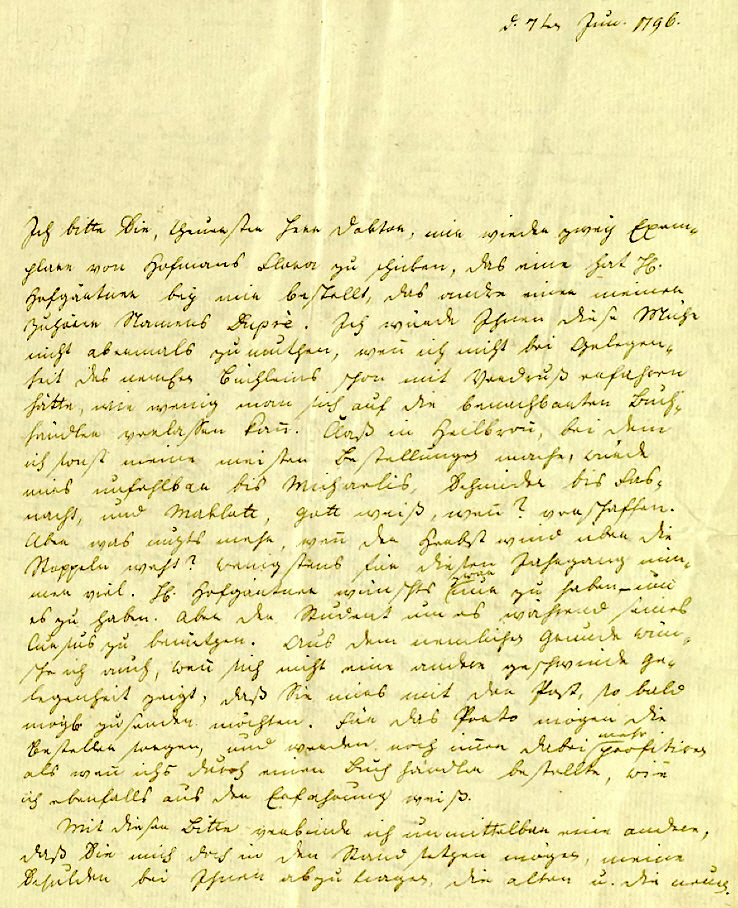 d. 7ten Jun. 1796.
Ich bitte Sie, theuerster Herr Doktor, mir wieder zwey Exem-
plare von Hofmans Flora zu schicken, das eine hat H.
Hofgärtner bey mir bestellt, das andre einer meiner
Zuhörer Namens Duprè. Ich würde Ihnen diese Mühe
nicht abermals zumuthen, weñ ich nicht bei Gelegen-
heit des nemlichen Büchleins schon mit Verdruß erfahren
hätte, wie wenig man sich auf die benachbarten Buch-
händler verlassen kañ. Claß in Heilbroñ, bei dem
ich sonst meine meisten Bestellungen mache, würde
mirs unfehlbar bis Michaelis, Schneider bis Fas-
nacht, und Maklott, Gott weiß, weñ? verschaffen.
Aber was nüzts mehr, weñ der Herbstwind über die
Stoppeln weht? wenigstens für diesen Jahrgang nim-
mer viel. H. Hofgärtner wünschts zwar nur zu haben um
es zu haben. Aber der Student um es während seines
Cursus zu benuzen. Aus dem nemlichen Grunde wün-
sche ich auch, weñ sich nicht eine andere geschwinde Ge-
legenheit zeigt, daß Sie mirs mit der Post, so bald
mögl. zusenden möchten. Für das Porto mögen die
Besteller sorgen, und werden noch im̃er dabei mehr profitiren
als weñ ichs durch einen Buchhändler bestellte, wie
ich ebenfalls aus der Erfahrung weiß.
Mit dieser Bitte verbinde ich unmittelbar eine andere,
daß Sie mich doch in den Stand setzen mögen, meine
Schulden bei Ihnen abzutragen, die alten u. die neuen.